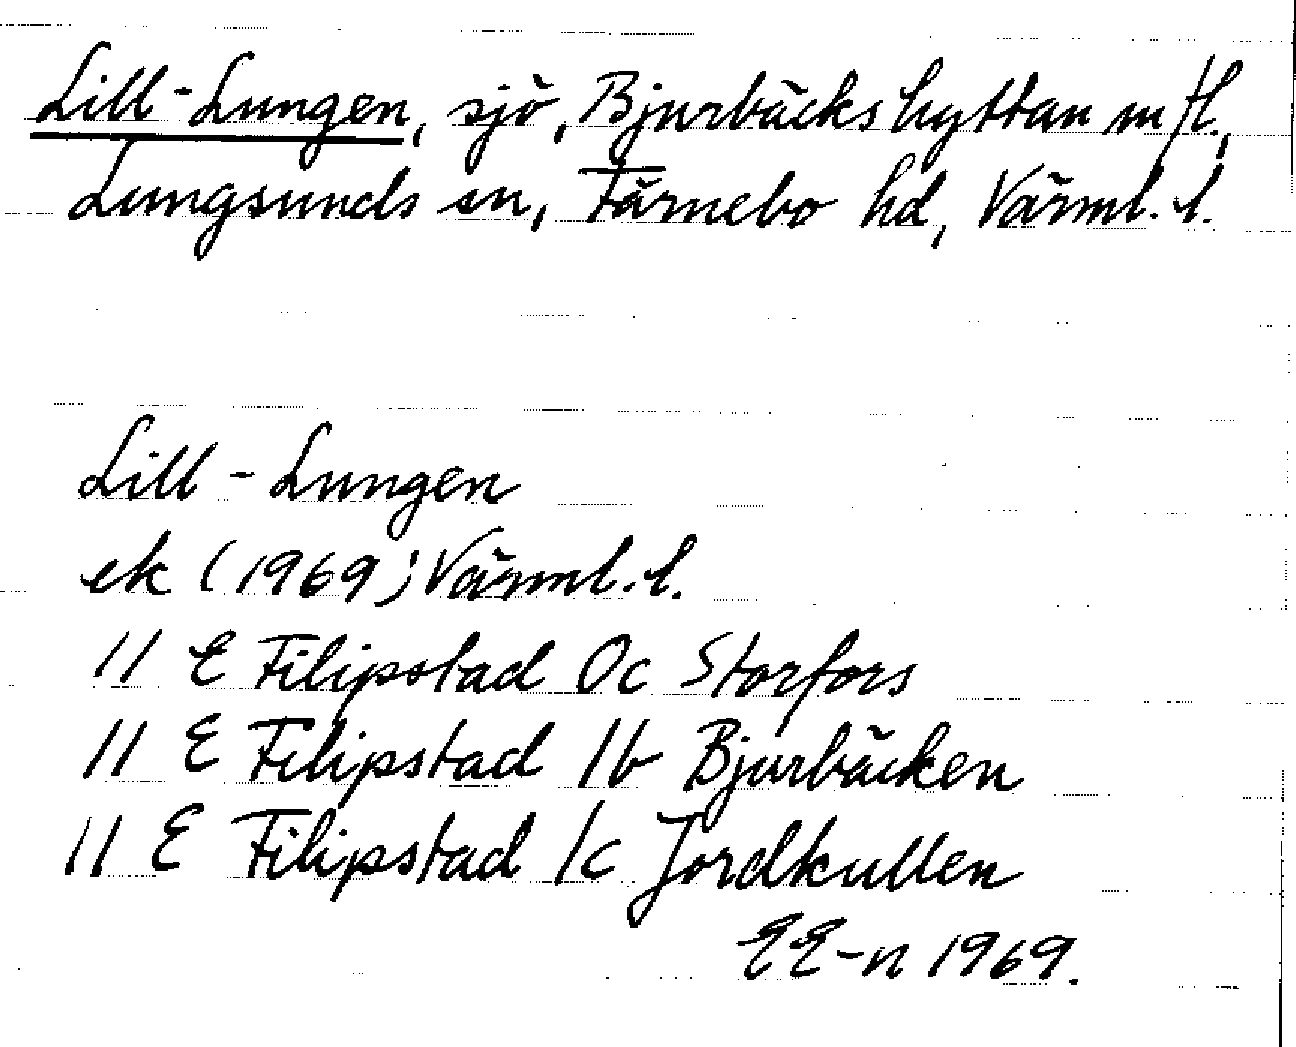 Lill-Lungen, sjö, Bjurbäckshyttan m fl.,
Lungsunds sn, Färnebo hd, Värml. l.
Lill-Lungen
ek (1969) Värml. l.
11 E Filipstad 0c Storfors
11 E Filipstad 1b Bjurbäcken
11 E Filipstad 1c Jordkullen
EE-n 1969.